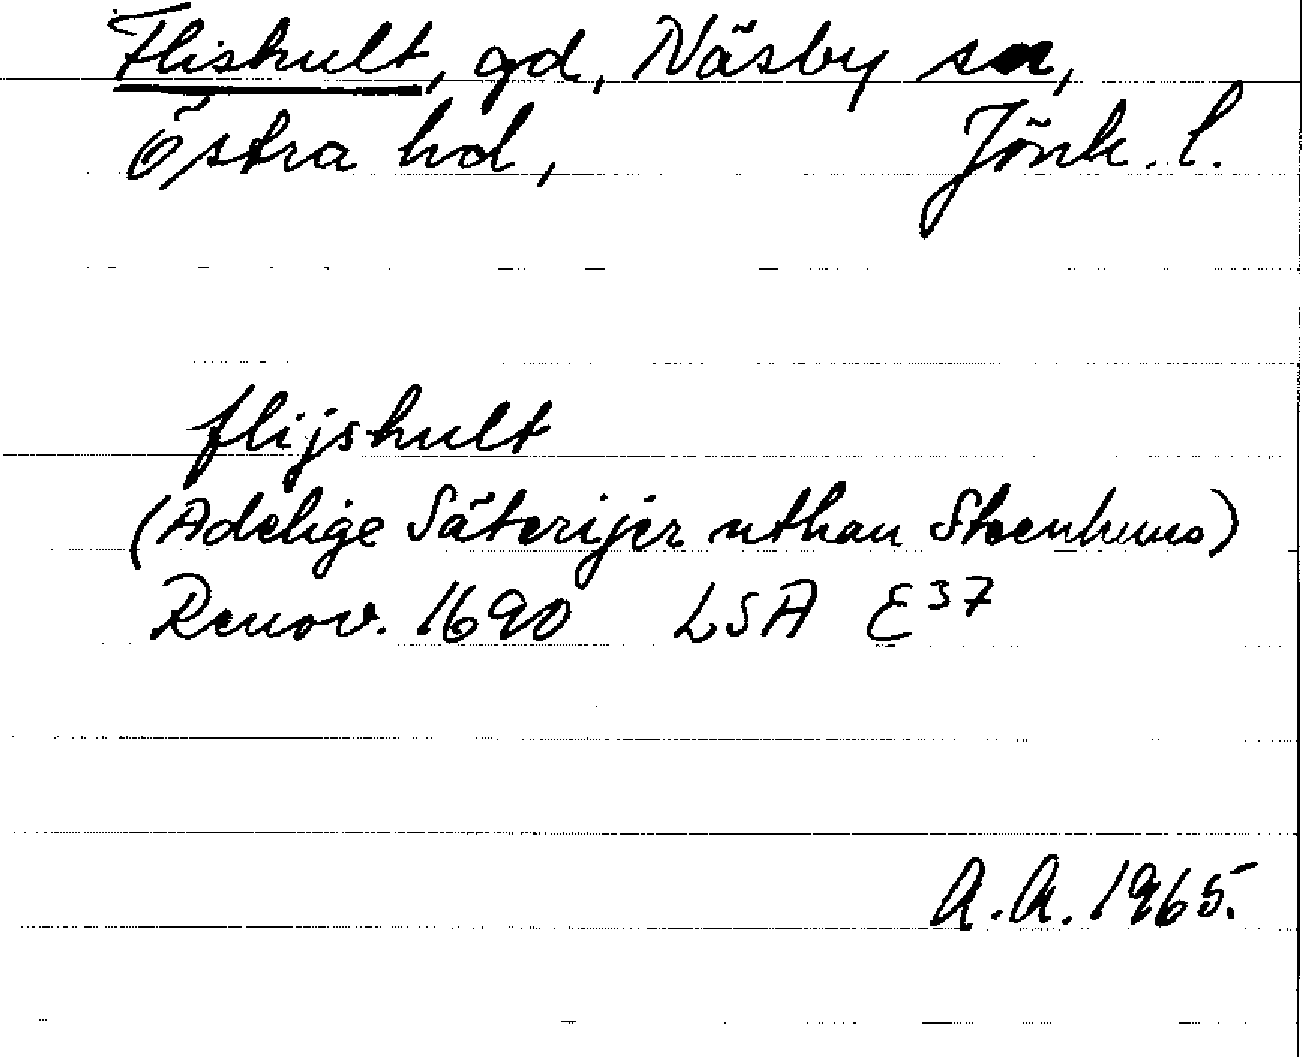 Flishult, gd, Näsby sn,
Östra hd, Jönk. l.
flijshult
(Adelige Säterijer uthan Steenhuus)
Renov. 1690 LSA E37
A.A. 1965.